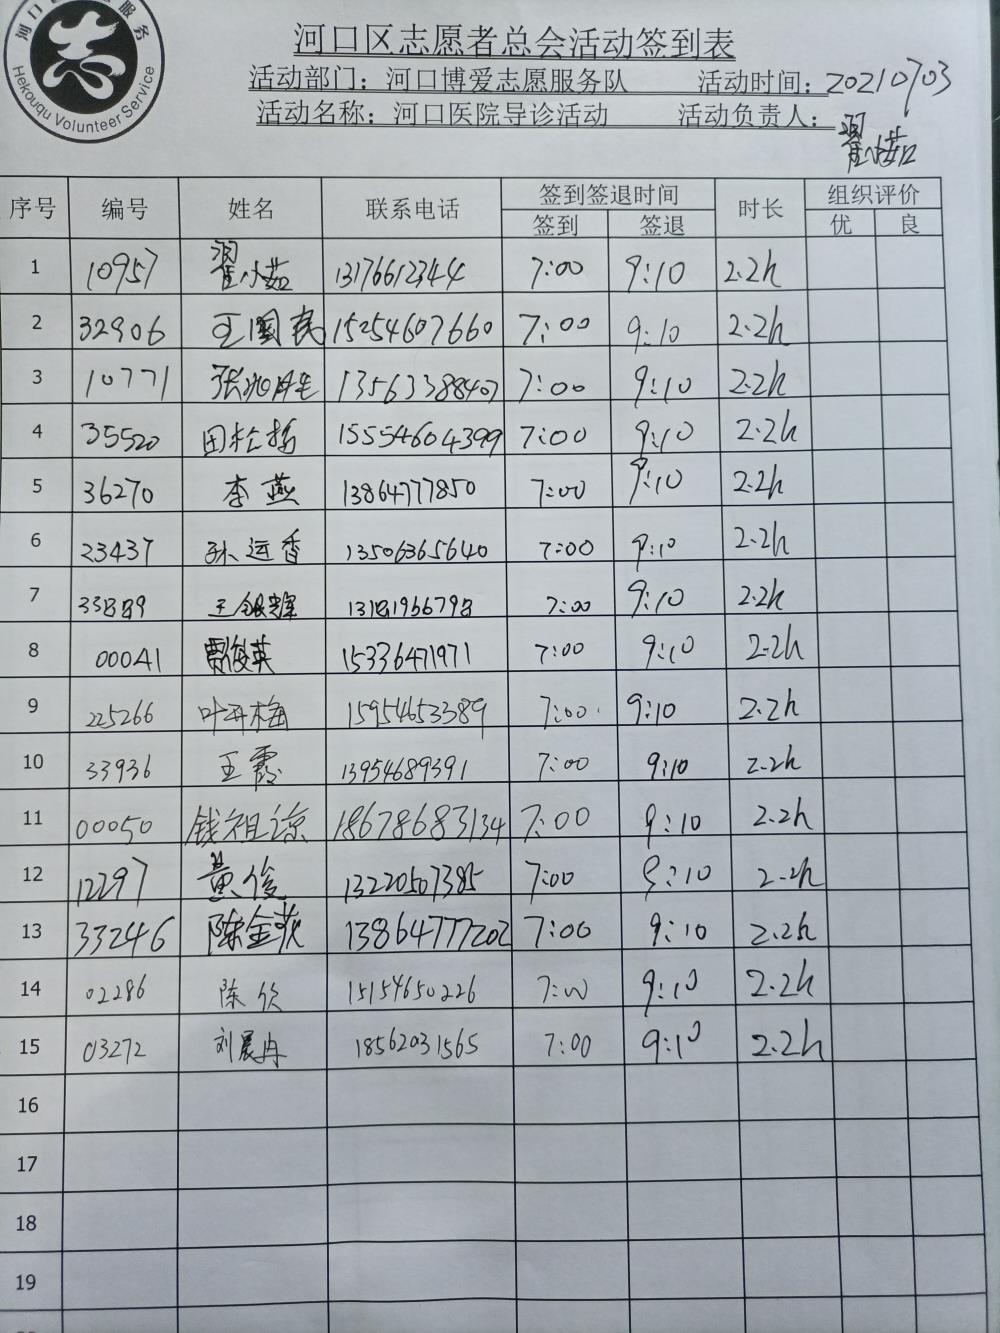 河口区志愿服务
Hekouqu Volunteer Service
志
河口区志愿者总会活动签到表
活动部门：河口博爱志愿服务队 活动时间：20210703
活动名称：河口医院导诊活动 活动负责人：翟小茹
序号 编号 姓名 联系电话 签到签退时间 时长 组织评价
签到 签退 优 良
1 10957 翟小茹 13176612344 7:00 9:10 2.2h
2 32906 王国民 15254607660 7:00 9:10 2.2h
3 10771 张兆胜 13563388407 7:00 9:10 2.2h
4 35520 田松梅 15554604399 7:00 9:10 2.2h
5 36270 李燕 13864777850 7:00 9:10 2.2h
6 23437 孙运香 13506365640 7:00 9:10 2.2h
7 33889 王银辉 13181966798 7:00 9:10 2.2h
8 00041 贾俊英 15336471971 7:00 9:10 2.2h
9 225266 叶丹梅 15954653389 7:00 9:10 2.2h
10 33936 王霞 13954689391 7:00 9:10 2.2h
11 00050 钱祖谅 18678683134 7:00 9:10 2.2h
12 12297 黄俊 13220507385 7:00 9:10 2.2h
13 33246 陈金花 13864777202 7:00 9:10 2.2h
14 02286 陈欣 15154650226 7:00 9:10 2.2h
15 03272 刘晨冉 18562031565 7:00 9:10 2.2h
16
17
18
19